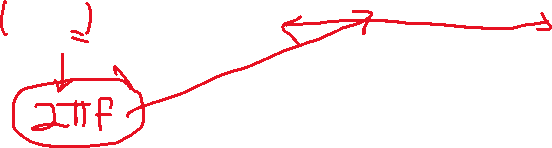 ( )
2πf